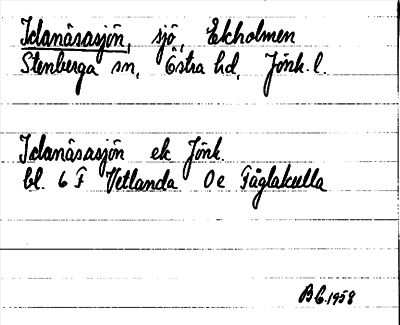 Idanäsasjön, sjö, Ekholmen
Stenberga sn, Östra hd, Jönk. l.
Idanäsasjön ek Jönk.
bl. 6 F Vetlanda 0e Fåglakulla
BC. 1958